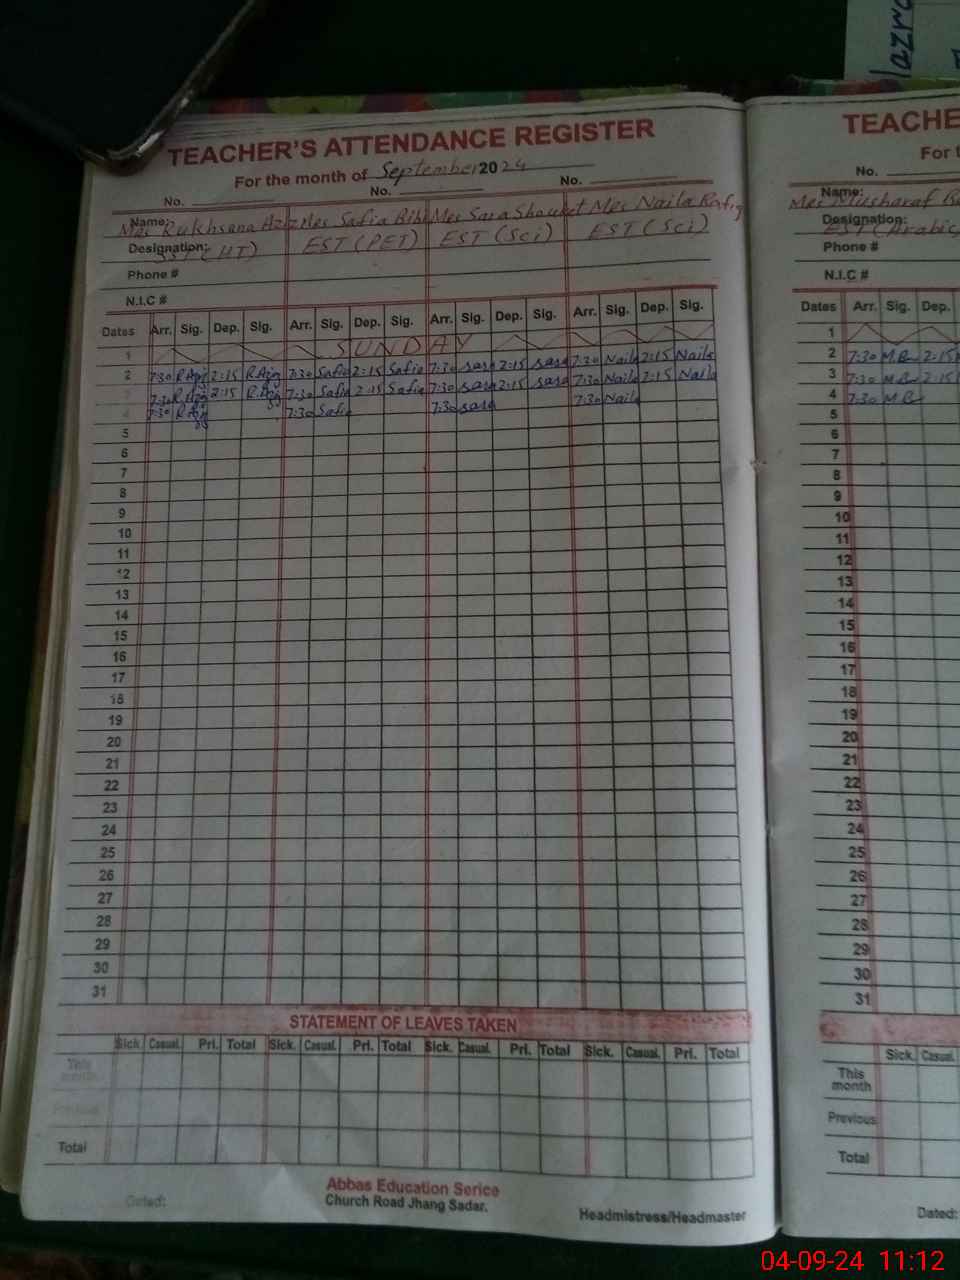 lazra
TEACHER'S ATTENDANCE REGISTER
For the month of September 2024
No. No. No.
Name: Mrs Rukhsana Aziz Mrs Safia Bibi Mrs Sara Shouket Mrs Naila Rafiq
Designation: EST (PET) EST (Sci) EST (Sci)
Phone #
N.I.C #
Dates Arr. Sig. Dep. Sig. Arr. Sig. Dep. Sig. Arr. Sig. Dep. Sig. Arr. Sig. Dep. Sig.
1 SUNDAY
2 7:30 R.Aziz 2:15 R.Aziz 7:30 Safia 2:15 Safia 7:30 sara 2:15 sara 7:30 Naila 2:15 Naila
3 7:30 R.Aziz 2:15 R.Aziz 7:30 Safia 2:15 Safia 7:30 sara 2:15 sara 7:30 Naila 2:15 Naila
4 7:30 R.Aziz 7:30 Safia 7:30 sara 7:30 Naila
5
6
7
8
9
10
11
12
13
14
15
16
17
18
19
20
21
22
23
24
25
26
27
28
29
30
31
STATEMENT OF LEAVES TAKEN
Sick. Casual. Pri. Total Sick. Casual. Pri. Total Sick. Casual. Pri. Total Sick. Casual. Pri. Total
This
month
Previous
Total
Abbas Education Serice
Church Road Jhang Sadar.
Dated: Headmistress/Headmaster
TEACHE
For t
No.
Name: Mrs Musharaf
Designation: EST (Arabic)
Phone #
N.I.C #
Dates Arr. Sig. Dep.
1
2 7:30 M.B 2:15
3 7:30 M.B 2:15
4 7:30 M.B
5
6
7
8
9
10
11
12
13
14
15
16
17
18
19
20
21
22
23
24
25
26
27
28
29
30
31
Sick. Casual.
This
month
Previous
Total
Dated:
04-09-24 11:12